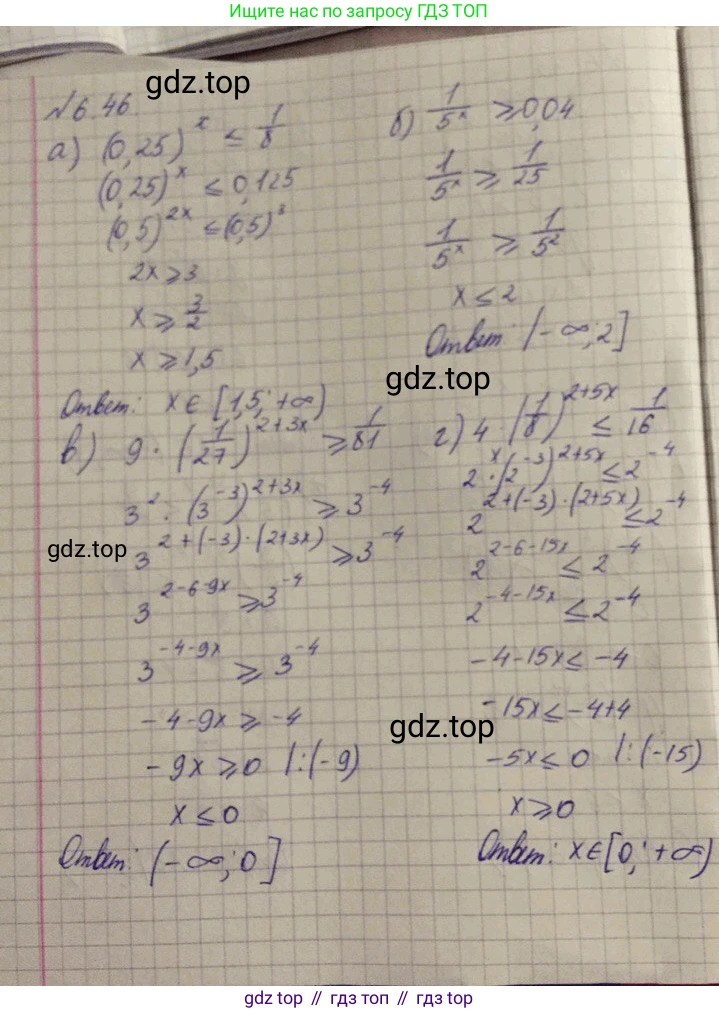 Ищите нас по запросу ГДЗ ТОП
gdz.top
№6.46
а) (0,25)^x ≤ 1/8
(0,25)^x ≤ 0,125
(0,5)^{2x} ≤ (0,5)^3
2x ≥ 3
x ≥ 3/2
x ≥ 1,5
Ответ: x ∈ [1,5; +∞)
б) 1/5^x ≥ 0,04
1/5^x ≥ 1/25
gdz.top
1/5^x ≥ 1/5^2
x ≤ 2
Ответ: (-∞; 2]
gdz.top
в) 9 · (1/27)^{2+3x} ≥ 1/81
3^2 · (3^{-3})^{2+3x} ≥ 3^{-4}
gdz.top
3^{2+(-3)·(2+3x)} ≥ 3^{-4}
3^{2-6-9x} ≥ 3^{-4}
3^{-4-9x} ≥ 3^{-4}
-4-9x ≥ -4
-9x ≥ 0 |:(-9)
x ≤ 0
Ответ: (-∞; 0]
г) 4 · (1/8)^{2+5x} ≤ 1/16
2^x · (2^{-3})^{2+5x} ≤ 2^{-4}
2^{2+(-3)·(2+5x)} ≤ 2^{-4}
2^{2-6-15x} ≤ 2^{-4}
2^{-4-15x} ≤ 2^{-4}
-4-15x ≤ -4
-15x ≤ -4+4
gdz.top
-5x ≤ 0 |:(-15)
x ≥ 0
Ответ: x ∈ [0; +∞)
gdz top // гдз топ // gdz top